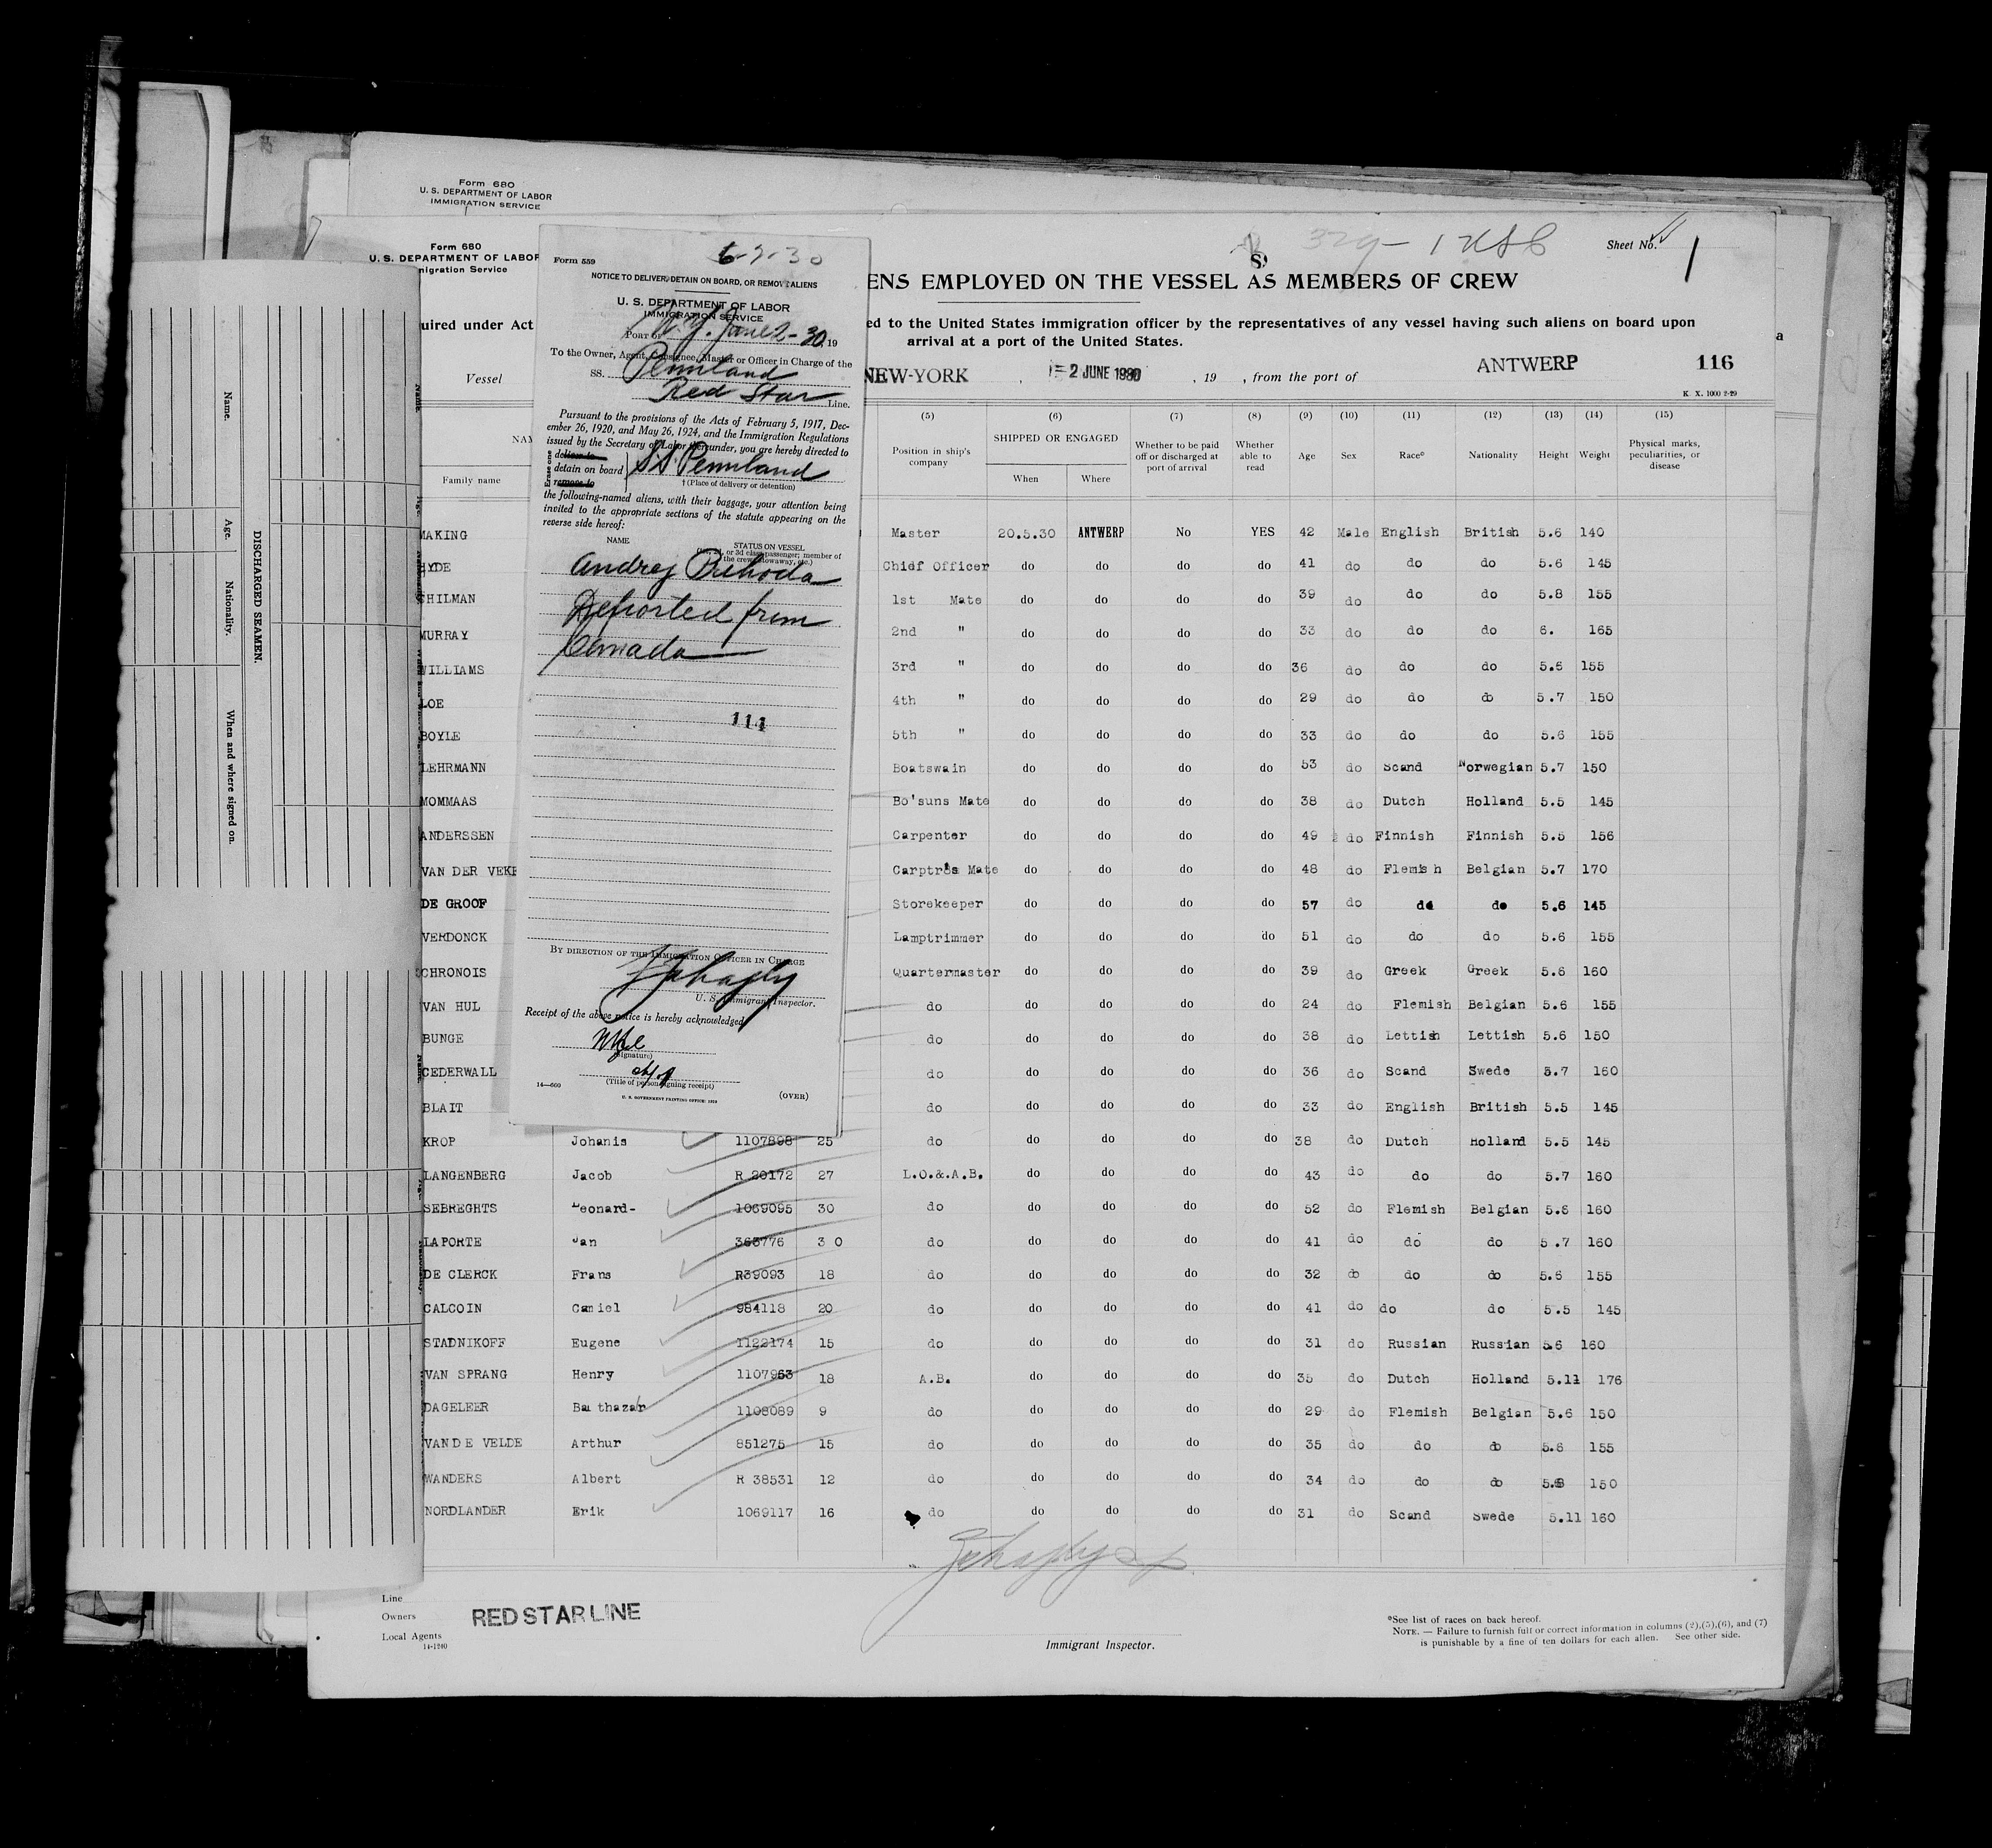 Form 680
U. S. DEPARTMENT OF LABOR
IMMIGRATION SERVICE
Form 680
U. S. DEPARTMENT OF LABOR
migration Service
Sheet No. 1
ENS EMPLOYED ON THE VESSEL AS MEMBERS OF CREW
uired under Act
ed to the United States immigration officer by the representatives of any vessel having such aliens on board upon
arrival at a port of the United States.
Vessel
NEW-YORK , 2 JUNE 1930 , 19 , from the port of ANTWERP 116
K. X. 1000 2-29
Form 559
6-2-30
NOTICE TO DELIVER, DETAIN ON BOARD, OR REMOVE ALIENS
U. S. DEPARTMENT OF LABOR
IMMIGRATION SERVICE
Port of N.Y. June 2-30, 19
To the Owner, Agent, Consignee, Master or Officer in Charge of the
SS. Pennland
Red Star Line.
Pursuant to the provisions of the Acts of February 5, 1917, Dec-
ember 26, 1920, and May 26, 1924, and the Immigration Regulations
issued by the Secretary of Labor thereunder, you are hereby directed to
Erase one
deliver to
detain on board S.S. Pennland
remove to
† (Place of delivery or detention)
the following-named aliens, with their baggage, your attention being
invited to the appropriate sections of the statute appearing on the
reverse side hereof:
NAME
STATUS ON VESSEL
or 3d class passenger; member of
the crew, stowaway, etc.)
Andrej Prihoda
Deported from
Canada
114
By direction of the Immigration Officer in Charge
U. S. Immigrant Inspector.
Receipt of the above notice is hereby acknowledged
(Signature)
(Title of person signing receipt)
14—600
U. S. GOVERNMENT PRINTING OFFICE: 1929
(OVER)
DISCHARGED SEAMEN.
Name.
Age.
Nationality.
When and where signed on.
(5) (6) (7) (8) (9) (10) (11) (12) (13) (14) (15)
NAM
Family name
Position in ship's company
SHIPPED OR ENGAGED
When Where
Whether to be paid off or discharged at port of arrival
Whether able to read
Age Sex Race* Nationality Height Weight
Physical marks, peculiarities, or disease
MAKING Master 20.5.30 ANTWERP No YES 42 Male English British 5.6 140
HYDE Chief Officer do do do do 41 do do do 5.6 145
CHILMAN 1st Mate do do do do 39 do do do 5.8 155
MURRAY 2nd " do do do do 33 do do do 6. 165
WILLIAMS 3rd " do do do do 36 do do do 5.6 155
LOE 4th " do do do do 29 do do do 5.7 150
BOYLE 5th " do do do do 33 do do do 5.6 155
LEHRMANN Boatswain do do do do 53 do Scand Norwegian 5.7 150
MOMMAAS Bo'suns Mate do do do do 38 do Dutch Holland 5.5 145
ANDERSSEN Carpenter do do do do 49 do Finnish Finnish 5.5 156
VAN DER VEKE Carptrs Mate do do do do 48 do Flemish Belgian 5.7 170
DE GROOF Storekeeper do do do do 57 do do do 5.6 145
VERDONCK Lamptrimmer do do do do 51 do do do 5.6 155
CHRONOIS Quartermaster do do do do 39 do Greek Greek 5.6 160
VAN HUL do do do do do 24 do Flemish Belgian 5.6 155
BUNGE do do do do do 38 do Lettish Lettish 5.6 150
CEDERWALL do do do do do 36 do Scand Swede 5.7 160
BLAIT do do do do do 33 do English British 5.5 145
KROP Johanis 1107898 25 do do do do do 38 do Dutch Holland 5.5 145
LANGENBERG Jacob R 20172 27 L.O.&.A.B. do do do do 43 do do do 5.7 160
SEBREGHTS Leonard- 1069095 30 do do do do do 52 do Flemish Belgian 5.6 160
LAPORTE Jan 363776 3 0 do do do do do 41 do do do 5.7 160
DE CLERCK Frans R39093 18 do do do do do 32 do do do 5.6 155
CALCOIN Camiel 984118 20 do do do do do 41 do do do 5.5 145
STADNIKOFF Eugene 1122174 15 do do do do do 31 do Russian Russian 5.6 160
VAN SPRANG Henry 1107963 18 A.B. do do do do 35 do Dutch Holland 5.11 176
DAGELEER Balthazar 1108089 9 do do do do do 29 do Flemish Belgian 5.6 150
VANDE VELDE Arthur 851275 15 do do do do do 35 do do do 5.6 155
WANDERS Albert R 38531 12 do do do do do 34 do do do 5.8 150
NORDLANDER Erik 1069117 16 do do do do do 31 do Scand Swede 5.11 160
Line
Owners RED STAR LINE
Local Agents
14-1240
Immigrant Inspector.
*See list of races on back hereof.
NOTE. — Failure to furnish full or correct information in columns (2),(5),(6), and (7)
is punishable by a fine of ten dollars for each alien. See other side.